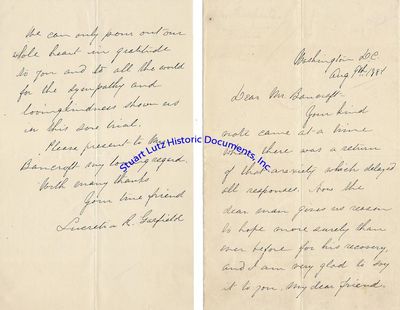 We can only pour out our
whole heart in gratitude
to you and to all the world
for the sympathy and
lovingkindness shown us
in this sore trial.
Please present to Mrs
Bancroft my loving regard.
With many thanks
Your true friend
Lucretia R. Garfield
Washington D.C
Aug 9th 1881
Dear Mr. Bancroft.
Your kind
note came at a time
when there was a return
of that anxiety which delayed
all responses. Now the
dear man gives us reason
to hope more surely than
ever before for his recovery,
and I am very glad to say
it to you, my dear friend.
Stuart Lutz Historic Documents, Inc.